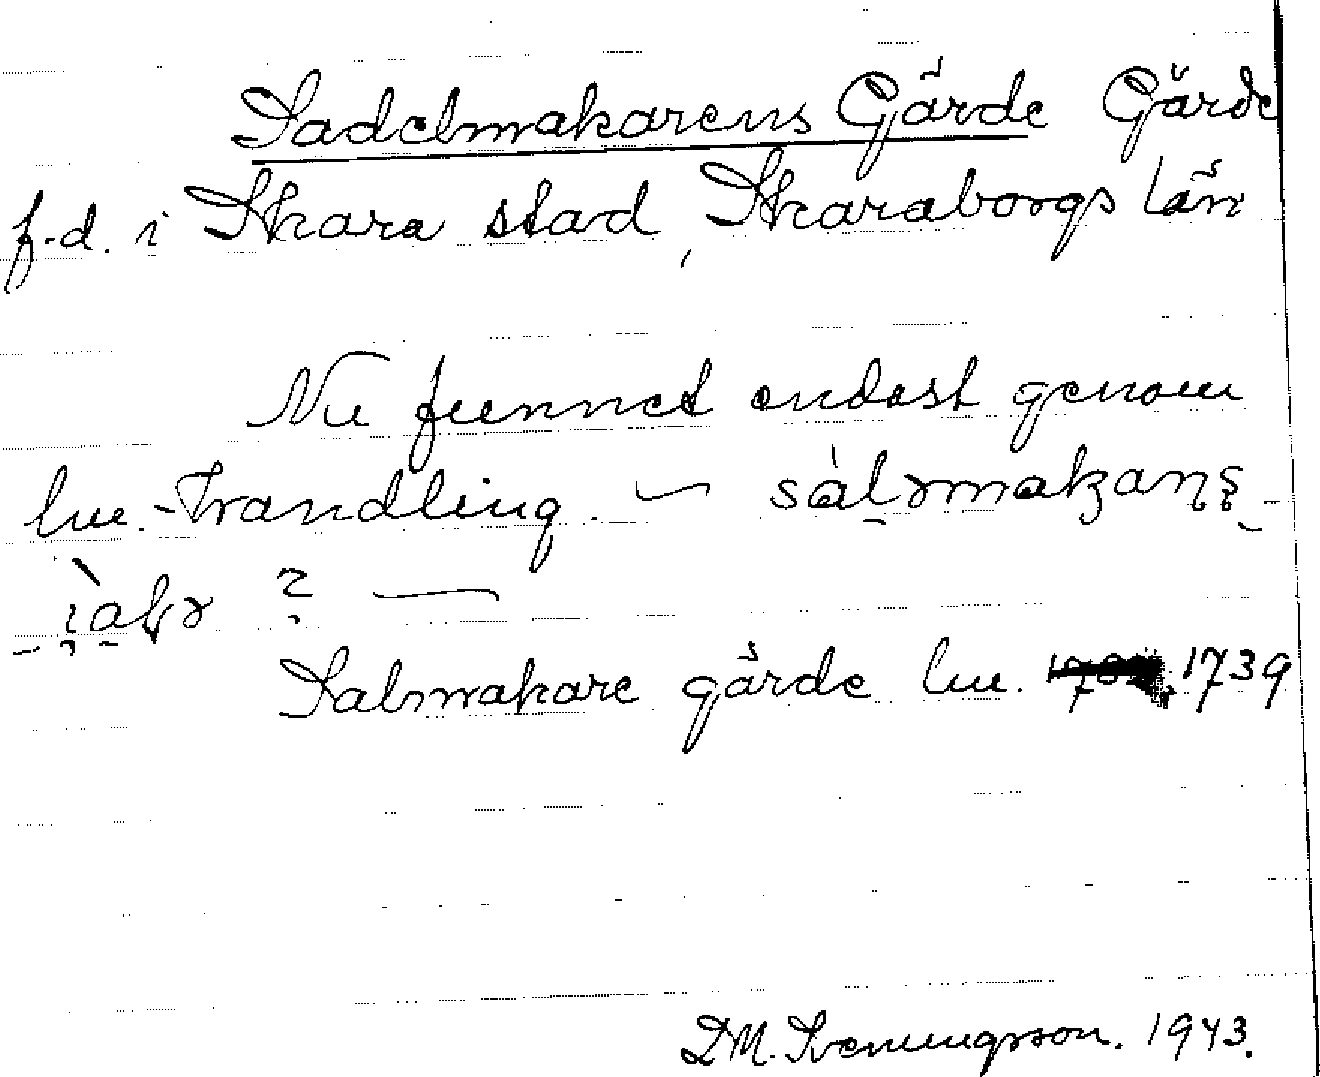 Sadelmakarens Gärde Gärde
f.d. i Skara stad, Skaraborgs län
Nu funnet endast genom
lm.-handling. —
?  —
Salmakare gärde lm. 1739
D.M. Svenningsson. 1943.